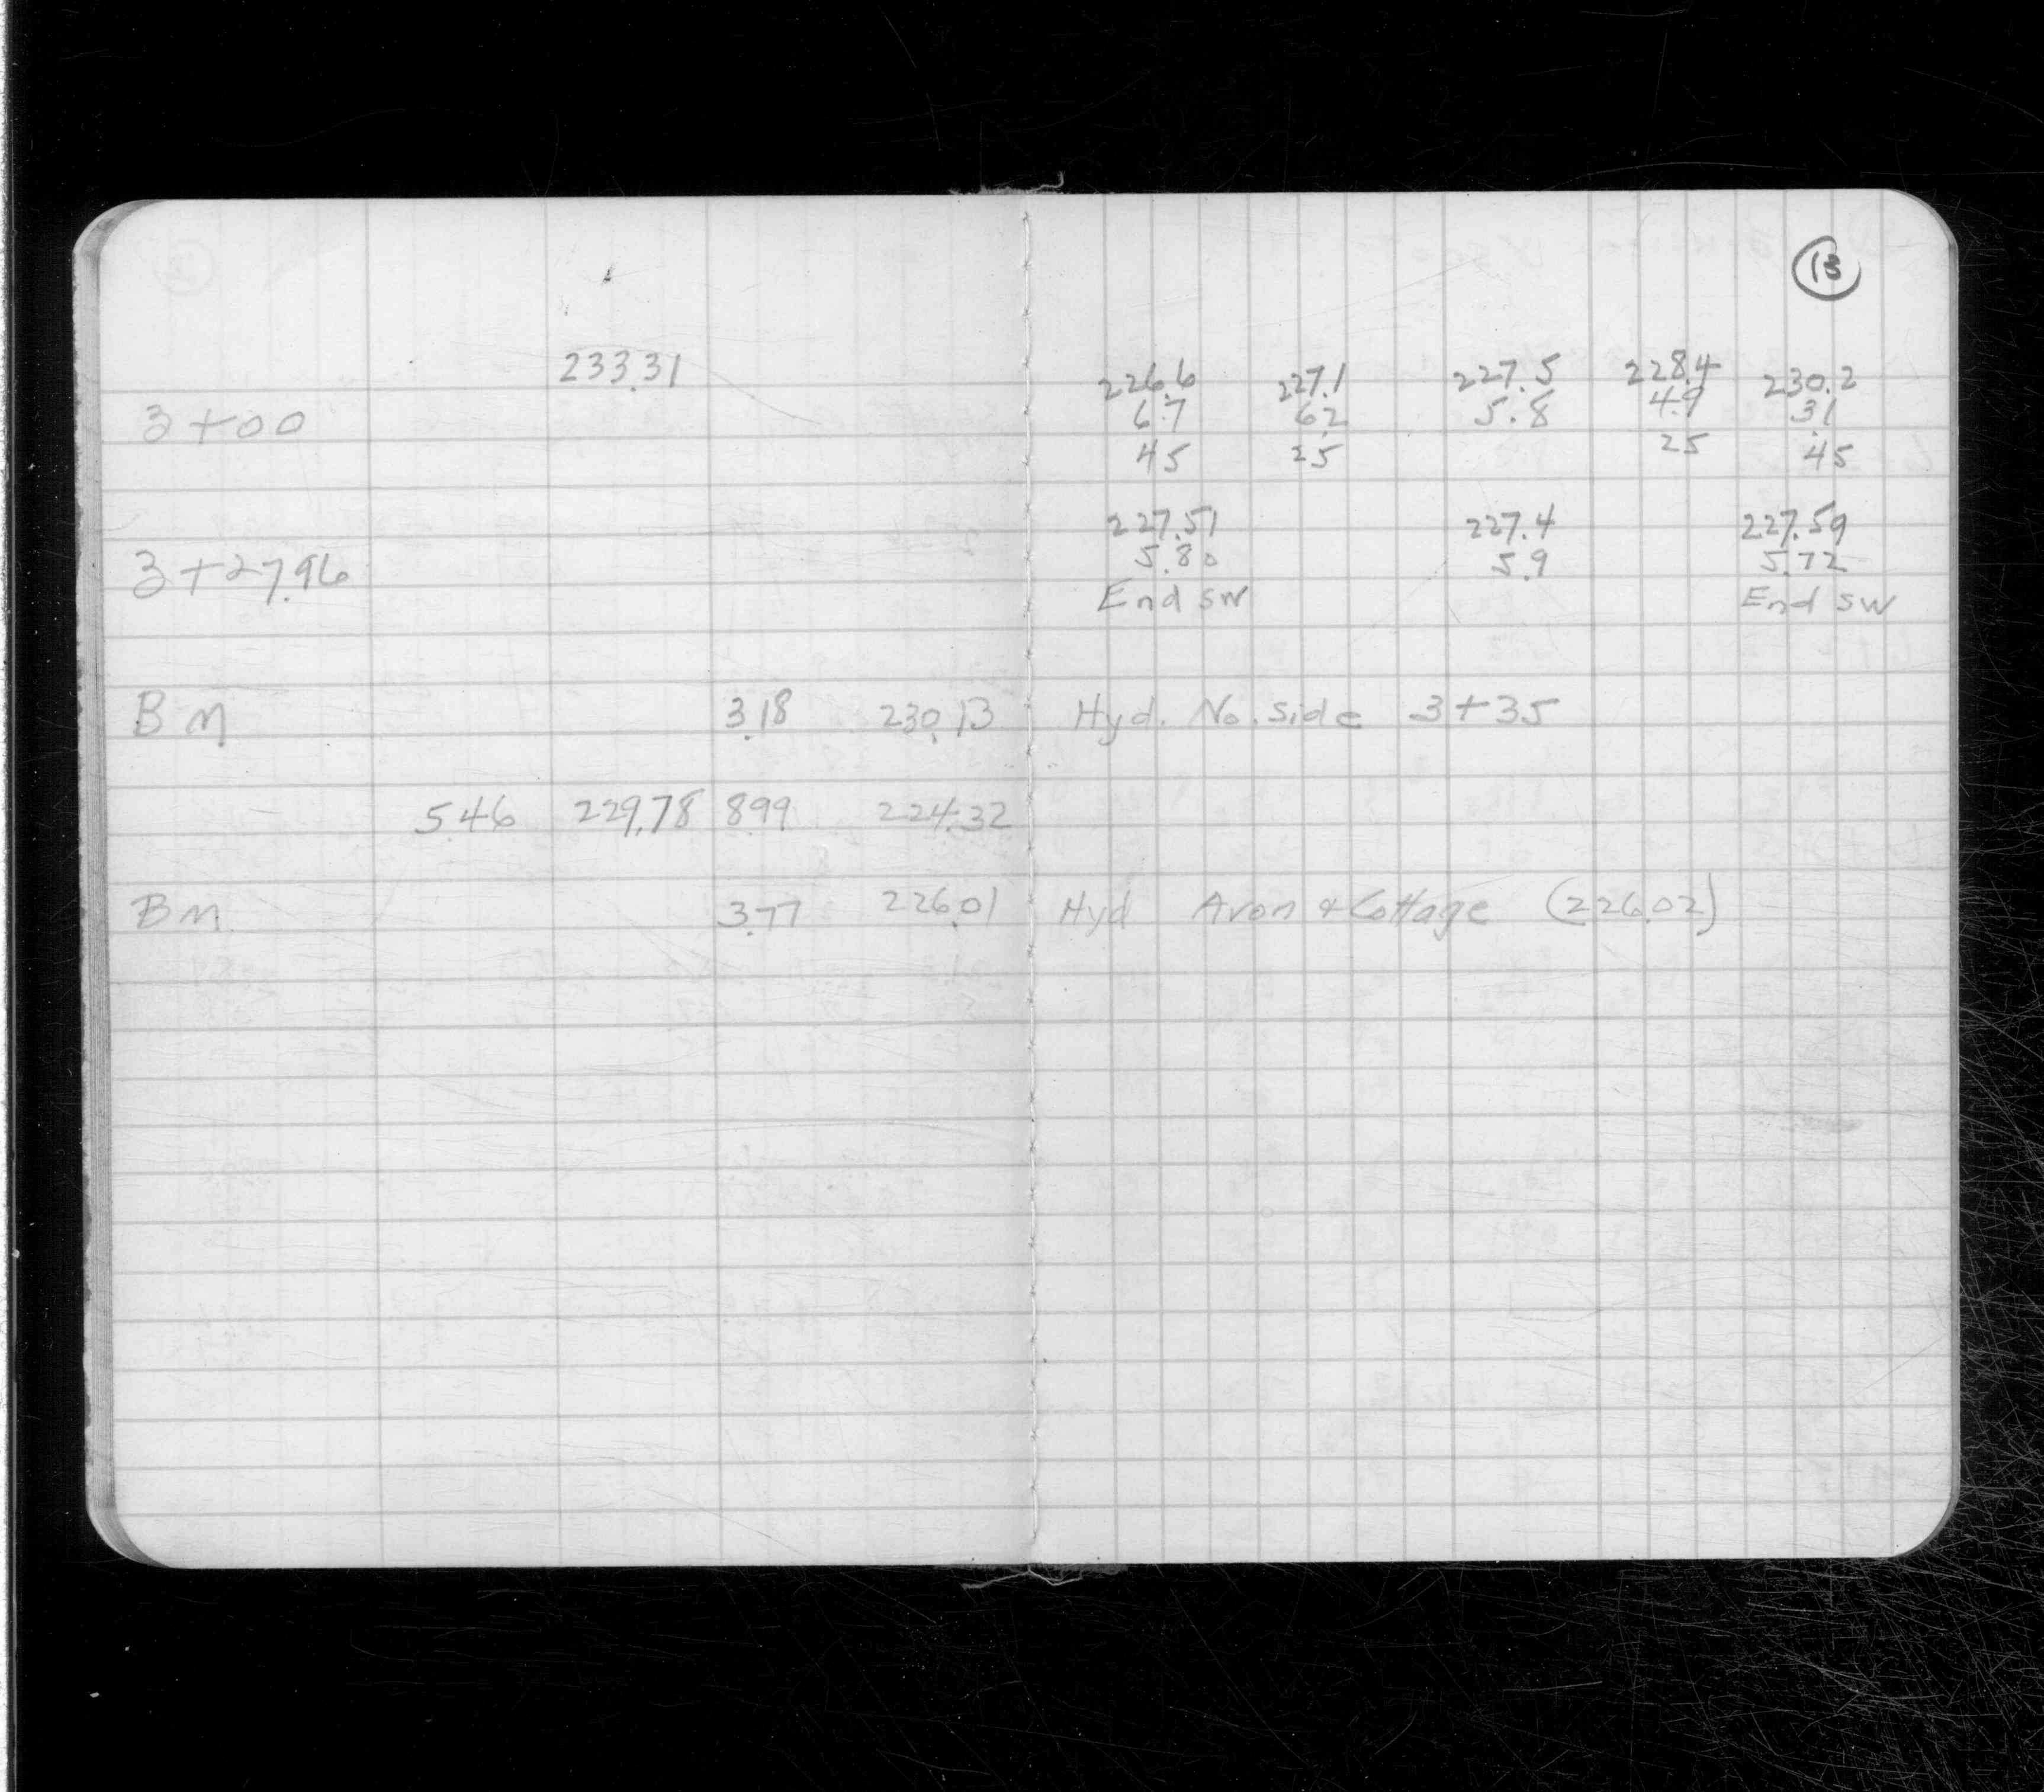 13
233.31
3+00
226.6 227.1 227.5 228.4 230.2
6.7 6.2 5.8 4.9 3.1
45 25 25 45
3+27.96
227.51 227.4 227.59
5.80 5.9 5.72
End SW End SW
BM 3.18 230.13 Hyd. No. side 3+35
5.46 229.78 8.99 224.32
BM 3.77 226.01 Hyd Avon & Cottage (226.02)